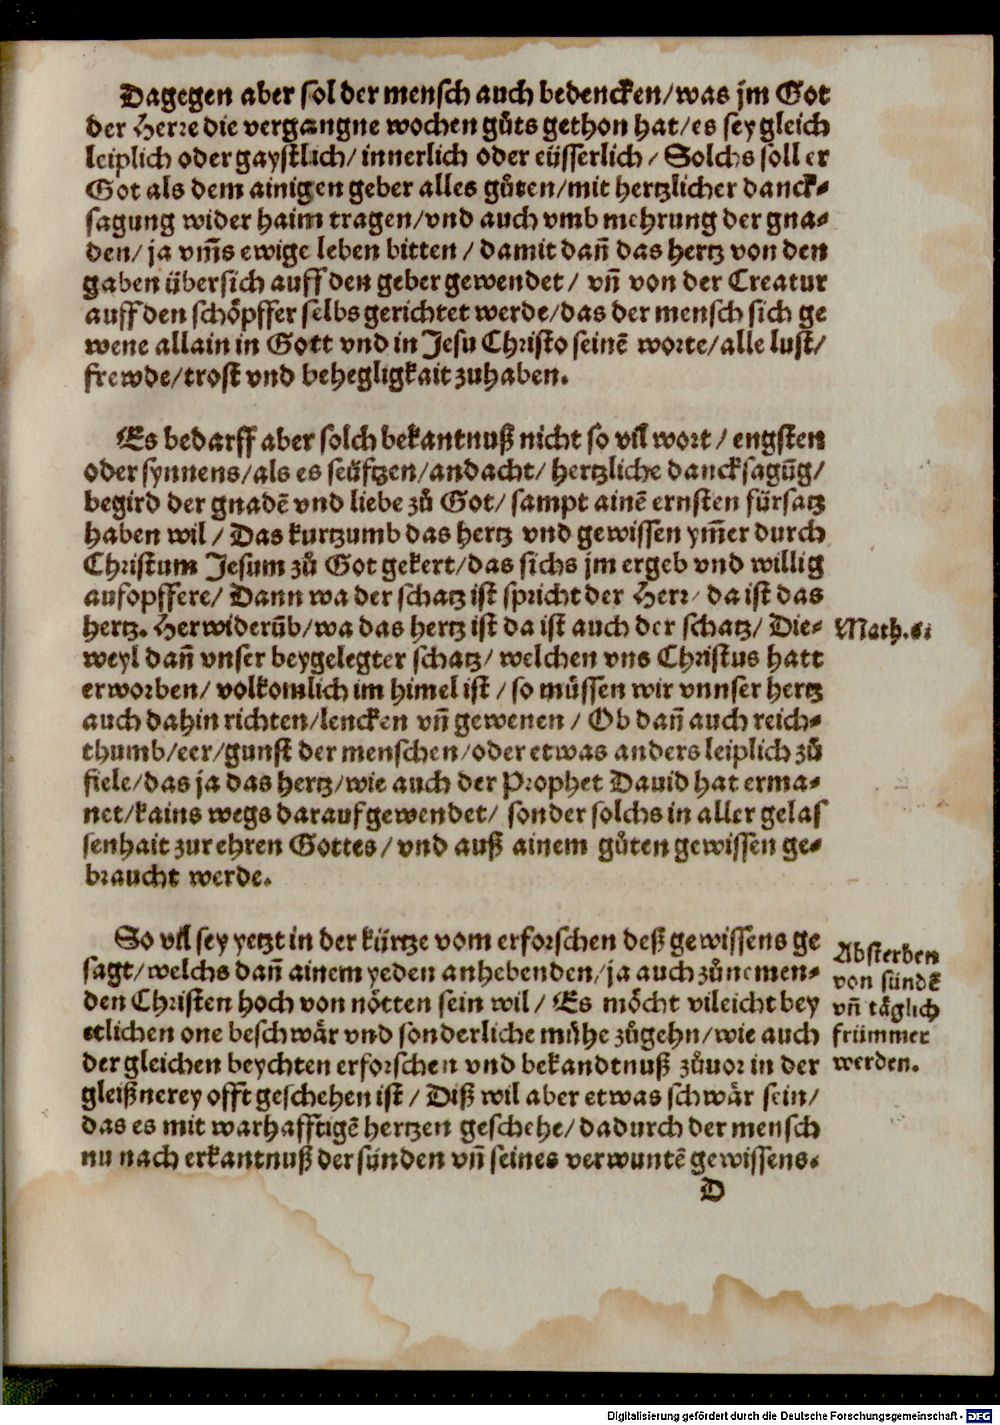 Dagegen aber sol der mensch auch bedencken/was jm Got
der Herre die vergangne wochen gůts gethon hat/es sey gleich
leiplich oder gaystlich/ innerlich oder eüsserlich/ Solchs soll er
Got als dem ainigen geber alles gůten/mit hertzlicher danck⸗
sagung wider haim tragen/vnd auch vmb mehrung der gna⸗
den/ ja vm̃s ewige leben bitten/ damit dañ das hertz von den
gaben übersich auff den geber gewendet/ vñ von der Creatur
auff den schöpffer selbs gerichtet werde/das der mensch sich ge
wene allain in Gott vnd in Jesu Christo seinẽ worte/alle lust/
frewde/trost vnd behegligkait zuhaben.
Es bedarff aber solch bekantnuß nicht so vil wort/ engsten
oder synnens/als es seüfftzen/andacht/ hertzliche dancksagũg/
begird der gnadẽ vnd liebe zů Got/ sampt ainẽ ernsten fürsatz
haben wil/ Das kurtzumb das hertz vnd gewissen ym̃er durch
Christum Jesum zů Got gekert/das sichs jm ergeb vnd willig
aufopffere/ Dann wa der schatz ist spricht der Herr/ da ist das
hertz. Herwiderũb/wa das hertz ist da ist auch der schatz/ Die⸗
Math.6.
weyl dañ vnser beygelegter schatz/ welchen vns Christus hatt
erworben/ volkomlich im himel ist/ so müssen wir vnnser hertz
auch dahin richten/lencken vñ gewenen/ Ob dañ auch reich⸗
thumb/eer/gunst der menschen/oder etwas anders leiplich zů
fiele/das ja das hertz/wie auch der Prophet Dauid hat erma⸗
net/kains wegs darauf gewendet/ sonder solchs in aller gelas
senhait zur ehren Gottes/ vnd auß ainem gůten gewissen ge⸗
braucht werde.
So vil sey yetzt in der kürtze vom erforschen deß gewissens ge
sagt/welchs dañ ainem yeden anhebenden/ja auch zůnemen⸗
den Christen hoch von nötten sein wil/ Es möcht vileicht bey
etlichen one beschwär vnd sonderliche mühe zůgehn/wie auch
der gleichen beychten erforschen vnd bekandtnuß zůuor in der
gleißnerey offt geschehen ist/ Diß wil aber etwas schwär sein/
das es mit warhafftigẽ hertzen geschehe/dadurch der mensch
nu nach erkantnuß der sünden vñ seines verwuntẽ gewissens.
Absterben
von sündẽ
vñ täglich
frümmer
werden.
D
Digitalisierung gefördert durch die Deutsche Forschungsgemeinschaft - DFG